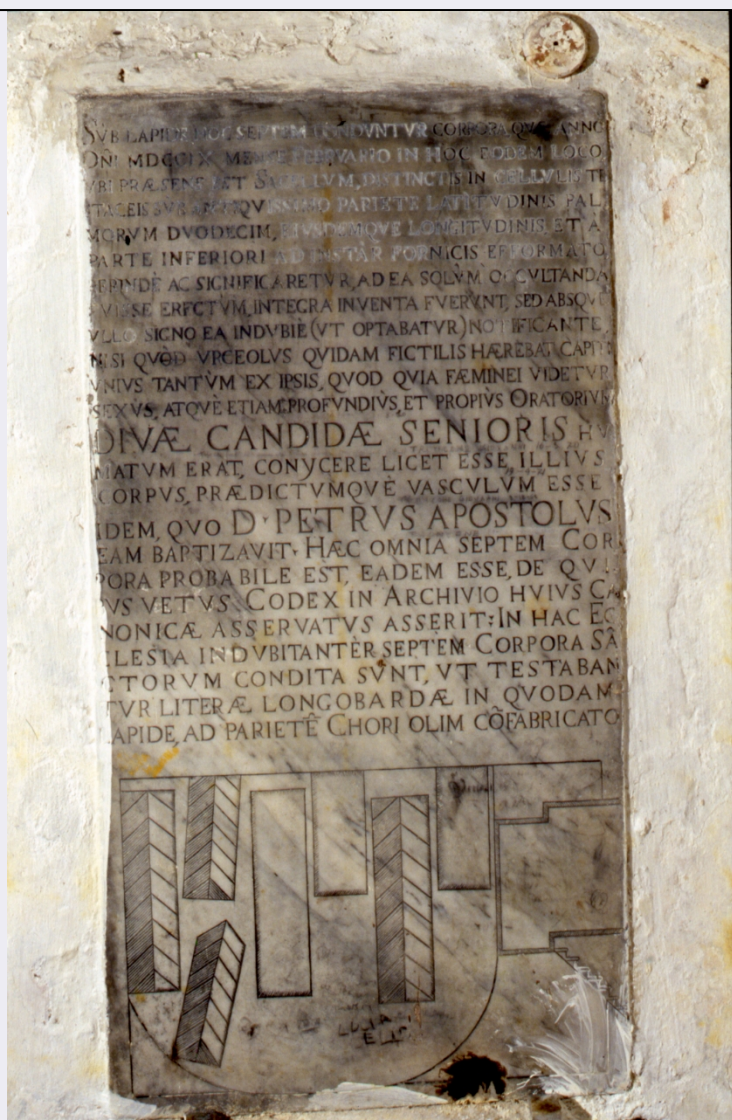 SVB LAPIDE HOC SEPTEM CONDVNTVR CORPORA, QVÆ ANNO
DÑI MDCCIX MENSE FEBRVARIO IN HOC EODEM LOCO
VBI PRÆSENS EST SACELLVM, DISTINCTIS IN CELLVLIS
SVB ANTIQVISSIMO PARIETE LATITVDINIS PAL
MORVM DVODECIM, EIVSDEMQVE LONGITVDINIS, ET À
PARTE INFERIORI AD INSTAR FORNICIS EFFORMATO
PERINDÈ AC SIGNIFICARETVR, AD EA SOLVM OCCVLTANDA
FVISSE ERECTVM, INTEGRA INVENTA FVERVNT, SED ABSQVE
VLLO SIGNO EA INDVBIÈ (VT OPTABATVR) NOTIFICANTE,
NISI QVÒD VRCEOLVS QVIDAM FICTILIS HÆREBAT CAPITI
VNIVS TANTVM EX IPSIS, QVOD QVIA FÆMINEI VIDETVR
SEXVS, ATQVÈ ETIAM PROFVNDIVS, ET PROPIVS ORATORIVM
DIVÆ CANDIDÆ SENIORIS HV
MATVM ERAT, CONYCERE LICET ESSE, ILLIVS
CORPVS, PRÆDICTVMQVÈ VASCVLVM ESSE
IDEM, QVO D. PETRVS APOSTOLVS
EAM BAPTIZAVIT. HÆC OMNIA SEPTEM COR
PORA PROBABILE EST, EADEM ESSE, DE QVI
BVS VETVS CODEX IN ARCHIVIO HVIVS CA
NONICÆ ASSERVATVS ASSERIT: IN HAC EC
CLESIA INDVBITANTÈR SEPTEM CORPORA SÃ
CTORVM CONDITA SVNT, VT TESTABAN
TVR LITERÆ LONGOBARDÆ IN QVODAM
LAPIDE, AD PARIETẼ CHORI OLIM CÕFABRICATO